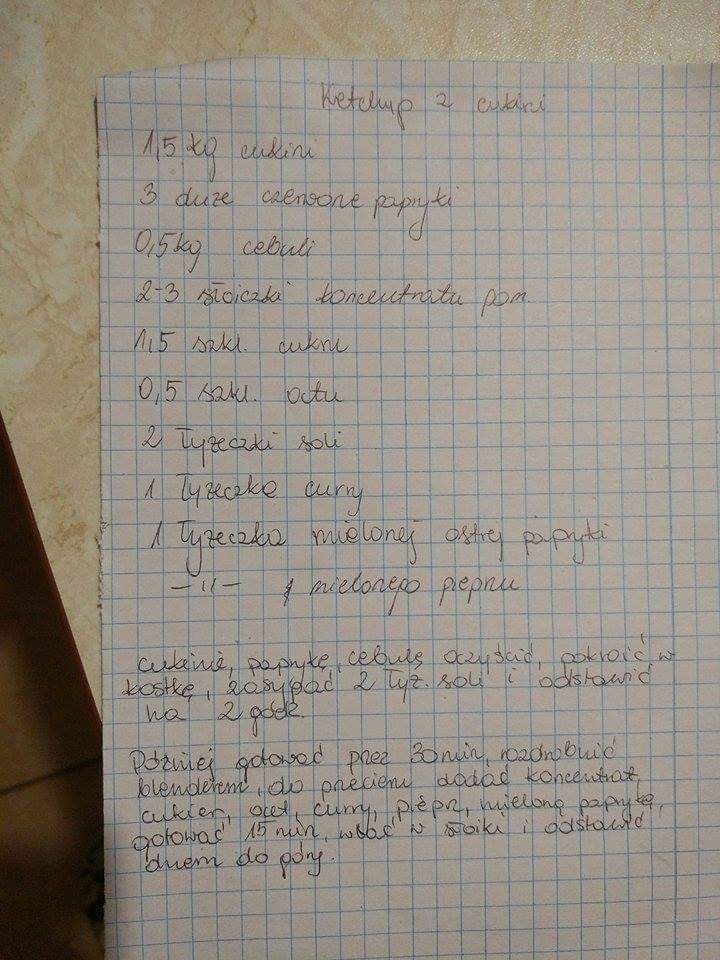 Ketchup z cukini
1,5 kg cukini
3 duże czerwone papryki
0,5 kg cebuli
2-3 słoiczki koncentratu pom.
1,5 szkl. cukru
0,5 szkl. octu
2 łyżeczki soli
1 łyżeczka curry
1 łyżeczka mielonej ostrej papryki
—11— mielonego pieprzu
cukinię, paprykę, cebulę oczyścić, pokroić w
kostkę, zasypać 2 łyż. soli i odstawić
na 2 godz.
Później gotować przez 30 min, rozdrobnić
blenderem, do przecieru dodać koncentrat,
cukier, ocet, curry, pieprz, mieloną paprykę,
gotować 15 min, wlać w słoiki i odstawić
dnem do góry.